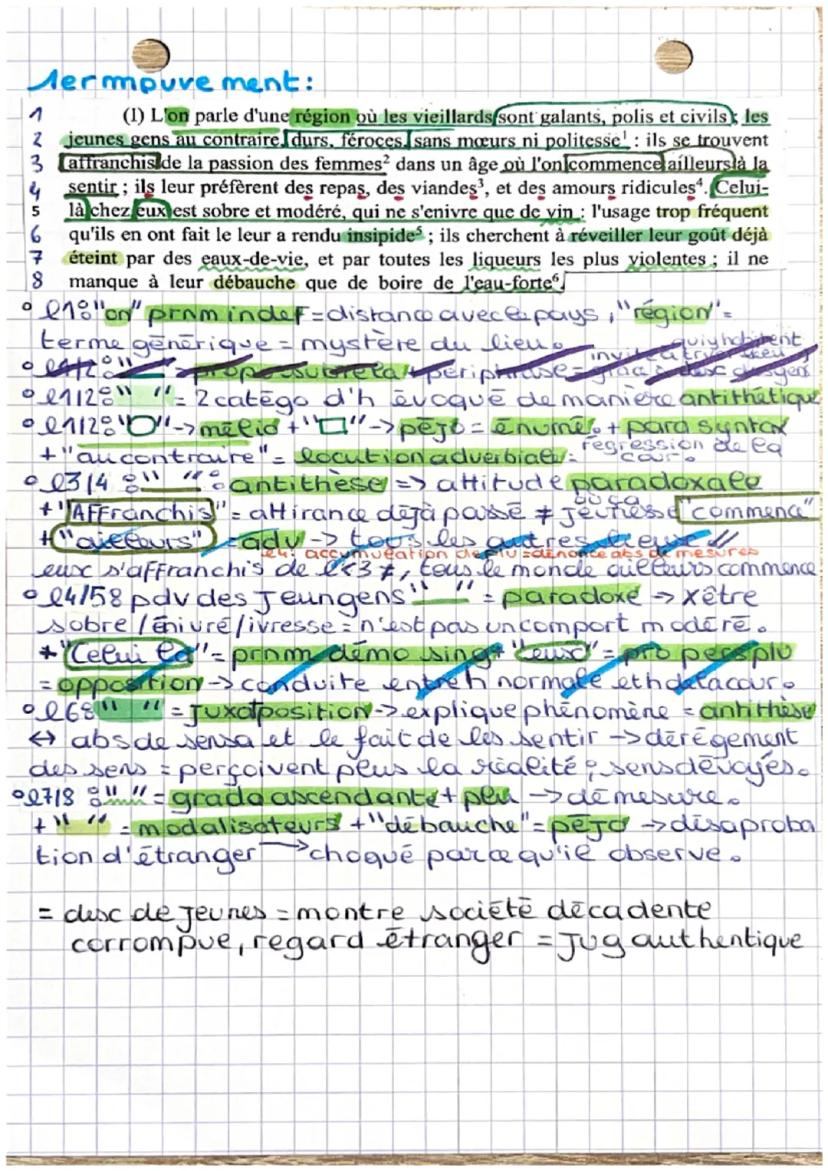 1er mouvement :
1 (I) L'on parle d'une région où les vieillards sont galants, polis et civils ; les
2 jeunes gens au contraire, durs, féroces, sans mœurs ni politesse¹ : ils se trouvent
3 affranchis de la passion des femmes² dans un âge où l'on commence ailleurs à la
4 sentir ; ils leur préfèrent des repas, des viandes³, et des amours ridicules⁴. Celui-
5 là chez eux est sobre et modéré, qui ne s'enivre que de vin : l'usage trop fréquent
6 qu'ils en ont fait le leur a rendu insipide⁵ ; ils cherchent à réveiller leur goût déjà
7 éteint par des eaux-de-vie, et par toutes les liqueurs les plus violentes ; il ne
8 manque à leur débauche que de boire de l'eau-forte⁶.
° l1: "on" prnm indef = distance avec le pays, "région" =
terme générique = mystère du lieu.
° l1/2: " " = 2 catégo d'h évoqué de manière antithétique
° l1/2: "O" -> mélio + "□" -> péjo = énumé. + para syntax
+ "au contraire" = locution adverbiale = régression de la cour.
° l3/4 : " " : antithèse => attitude paradoxale
+ "Affranchis" = attirance déjà passé ≠ jeunesse où ça "commence"
+ "ailleurs" = adv -> tous les autres lieux //
l4: accumulation de plu = dénonce abs de mesures
eux s'affranchis de l<3 ≠, tous le monde ailleurs commence
° l4/5: pdv des jeun gens " " = paradoxe -> x être
sobre / énivré / ivresse = n'est pas un comport modéré.
+ "Celui là" = prnm démo sing + "eux" = pro pers plu
= opposition -> conduite entre h normale et h de la cour.
° l6: " " = juxatposition -> explique phénomène = antithèse
↔ abs de sensa et le fait de les sentir -> dérégement
des sens = perçoivent plus la réalité ; sens dévoyés.
° l7/8 : " " = grada ascendante + plu -> démesure.
+ " " = modalisateurs + "débauche" = péjo -> désaproba
tion d'étranger -> choqué par ce qu'il observe.
= desc de jeunes = montre société décadente
corrompue, regard étranger = jug authentique